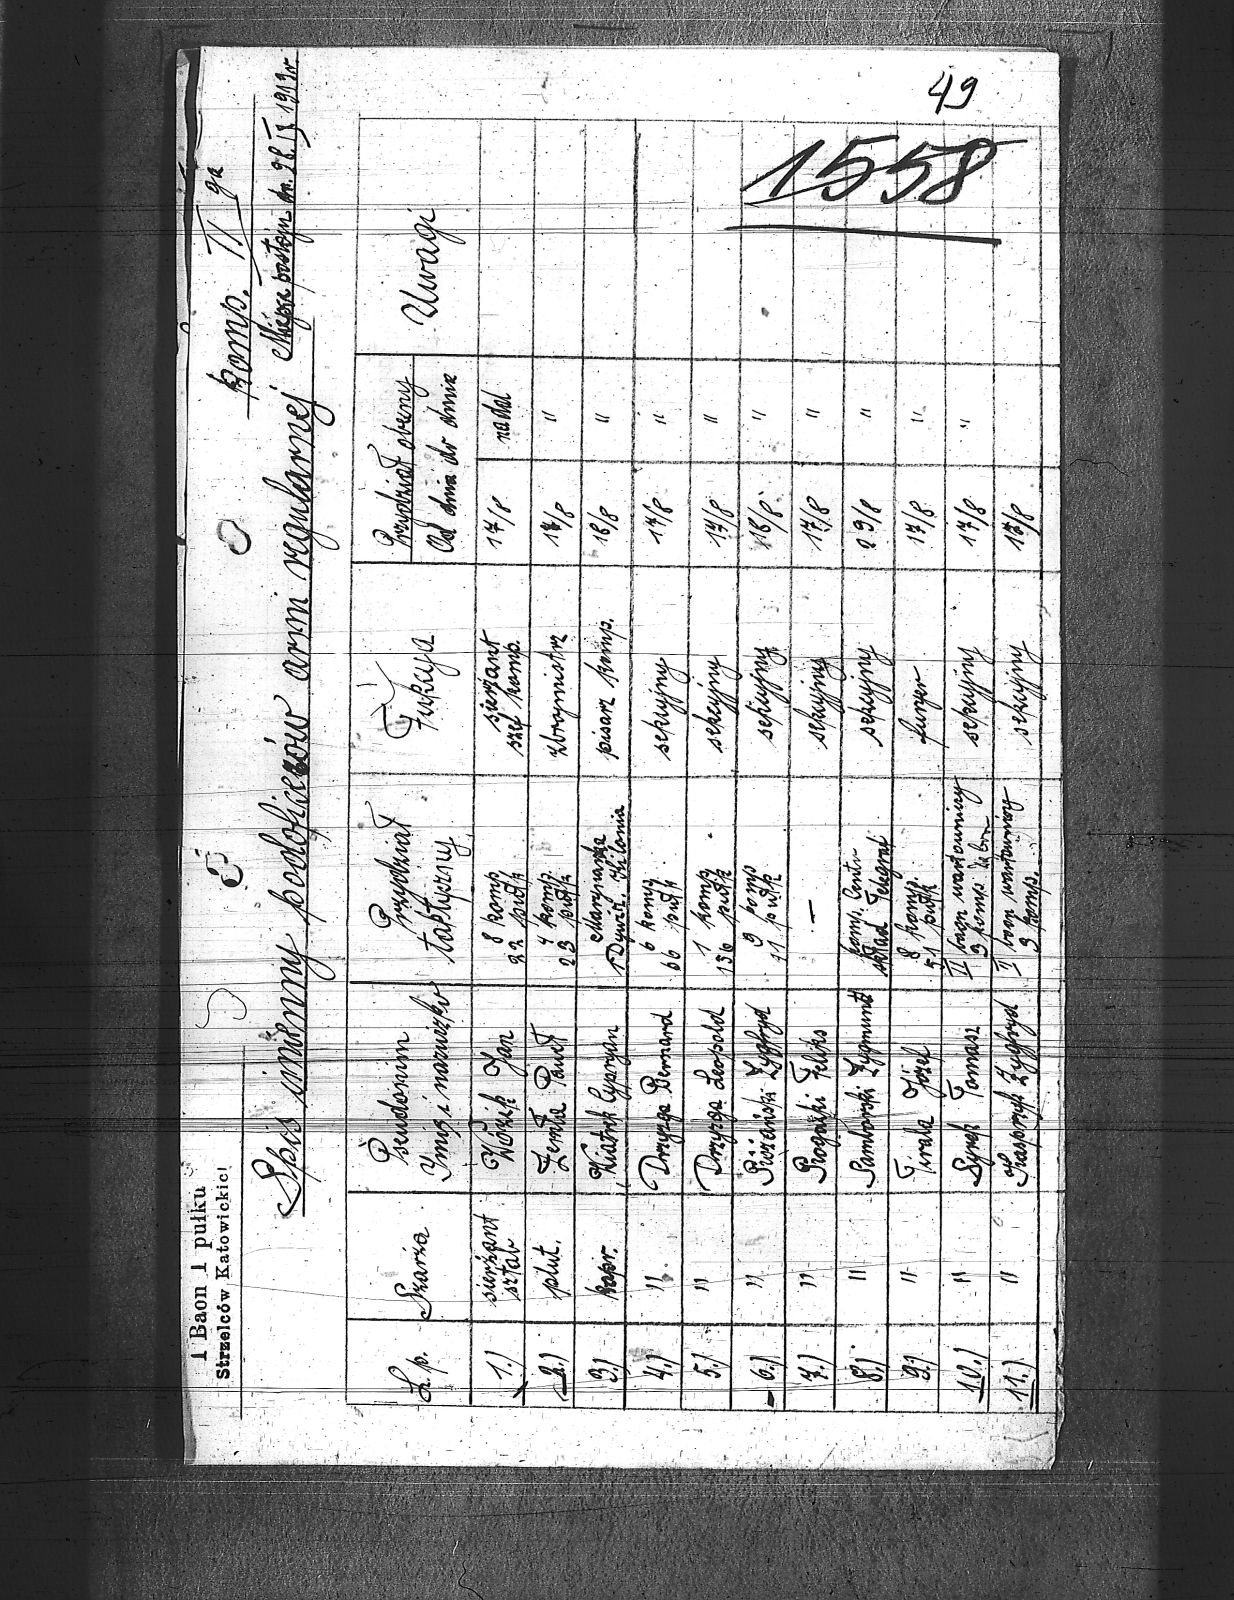 49
1558
1 Baon 1 pułku
Strzelców Katowickic
komp. II ga
Miejsce postoju dn. 28. IX 1919 r.
Spis imienny podoficerów armi regularnej
L.p. Szarża Pseudonim Imię i nazwisko Przydział taktyczny Fukcya Przydział obecny Od dnia do dnia Uwagi
1.) sierżant sztab Wózik Jan 8 komp. 22 pułk sierżant szef komp. 17/8 nadal
2.) plut. Zenta Paweł 4 komp. 23 pułk zbrojmistrz 17/8 "
3.) kapr. Cypryan Marynarka 1 Dywiz. Kilonia pisarz komp. 18/8 "
4.) " Drzyzga Bernard 6 komp. 66 pułk sekcyjny 17/8 "
5.) " Drzyzga Leopold 1 komp. 136 pułk sekcyjny 17/8 "
6.) " Zygfryd 9 komp 11 pułk sekcyjny 18/8 "
7.) " Rogalski Feliks — sekcyjny 17/8 "
8.) " Samborski Zygmunt komp. skład Telegraf sekcyjny 29/8 "
9.) " Firala Józef 8 komp. 51 pułk furyer 17/8 "
10.) " Syrek Tomasz II baon wartowniczy 3 komp. sekcyjny 17/8 "
11.) " Kasprzyk Zygfryd II baon wartowniczy 3 komp. sekcyjny 17/8